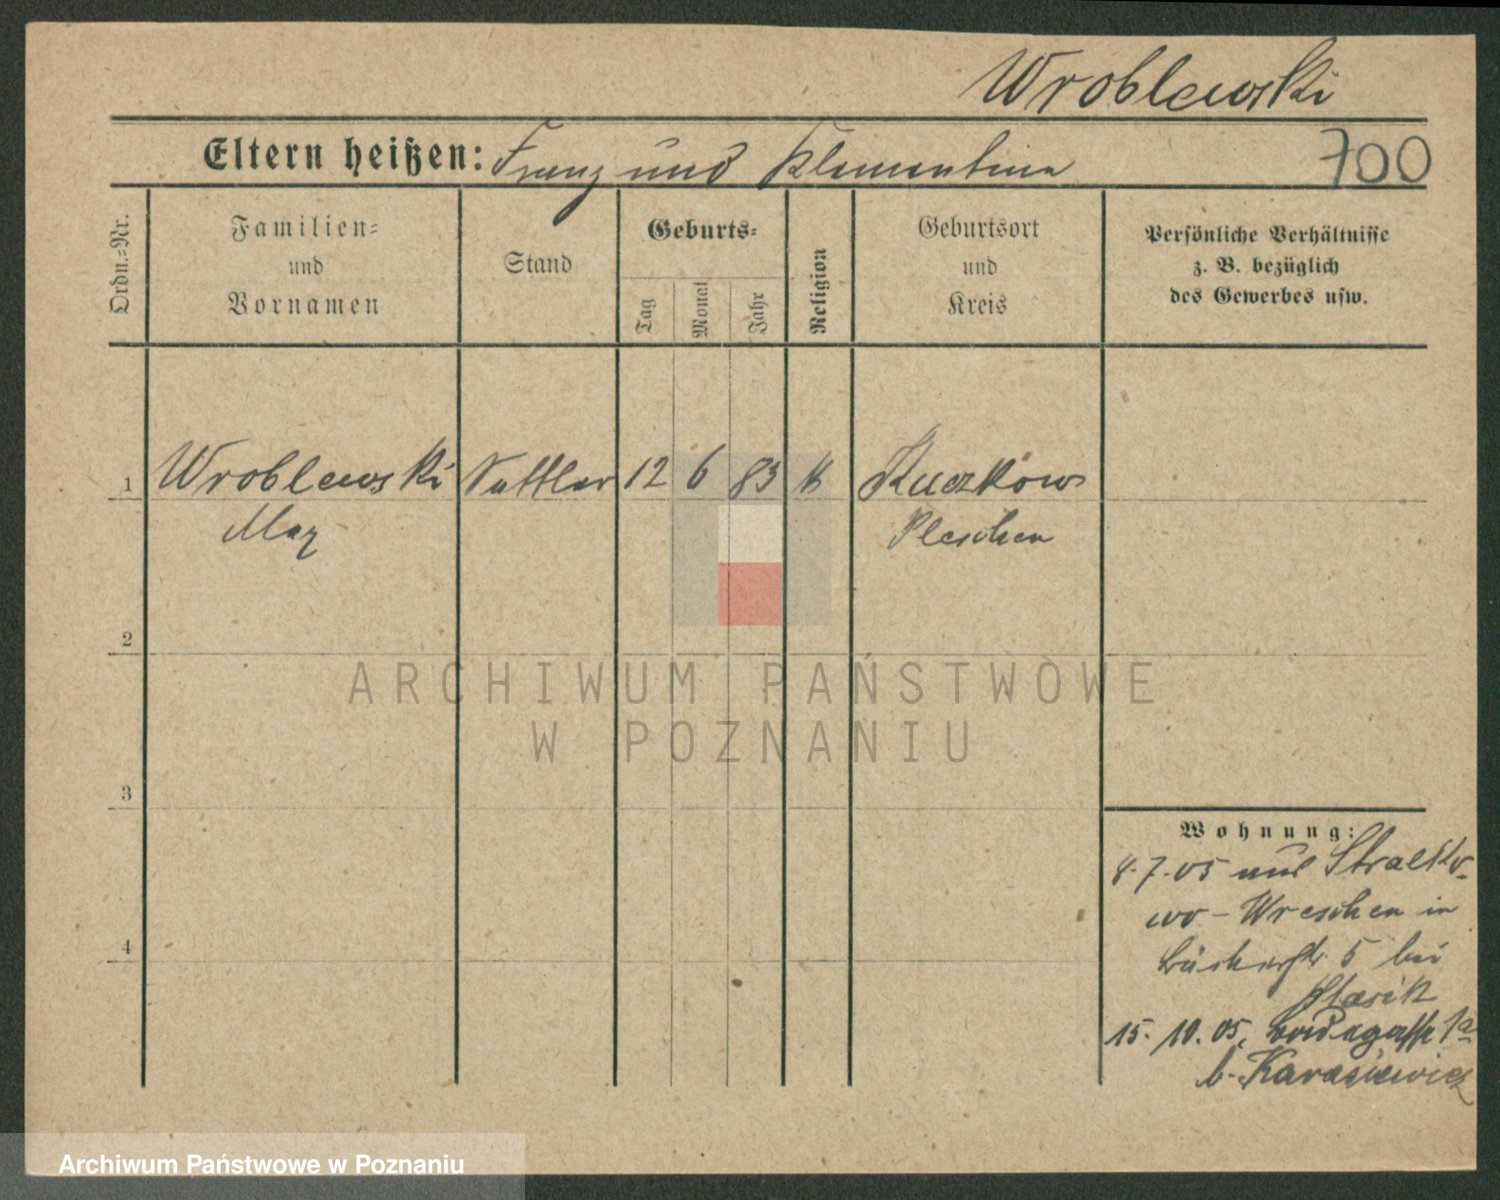 Wroblewski
Eltern heißen: Franz und Klementina
700
Ordn.-Nr.
Familien-
und
Vornamen
Stand
Geburts-
Tag
Monat
Jahr
Religion
Geburtsort
und
Kreis
Persönliche Verhältnisse
z. B. bezüglich
des Gewerbes usw.
1 Wroblewski Sattler 12 6 83 k Kuczkow
Max Pleschen
2
3
4
Wohnung:
8.7.05 aus Stralko-
wo - Wreschen in
5 bei
15. 10. 05. 1a
b. Karasiewicz
ARCHIWUM PAŃSTWOWE
W POZNANIU
Archiwum Państwowe w Poznaniu